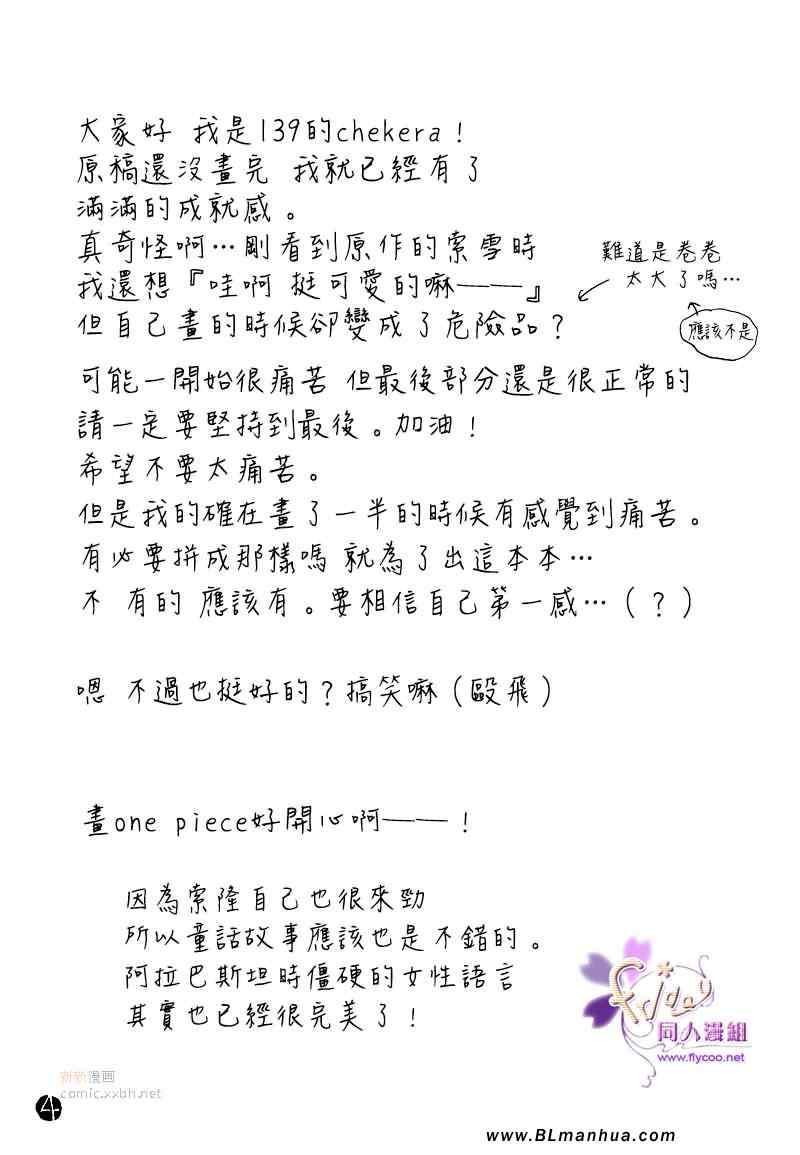 大家好 我是139的chekera！
原稿還沒畫完 我就已經有了
滿滿的成就感。
真奇怪啊…剛看到原作的索雪時
我還想『哇啊 挺可愛的嘛───』
但自己畫的時候卻變成了危險品？
難道是卷卷
太大了嗎…
應該不是
可能一開始很痛苦 但最後部分還是很正常的
請一定要堅持到最後。加油！
希望不要太痛苦。
但是我的確在畫了一半的時候有感覺到痛苦。
有必要拼成那樣嗎 就為了出這本本…
不 有的 應該有。要相信自己第一感…（？）
嗯 不過也挺好的？搞笑嘛（毆飛）
畫one piece好開心啊───！
因為索隆自己也很來勁
所以童話故事應該也是不錯的。
阿拉巴斯坦時僵硬的女性語言
其實也已經很完美了！
Friday
同人漫組
www.flycoo.net
新新漫画
comic.xxbh.net
4
www.BLmanhua.com